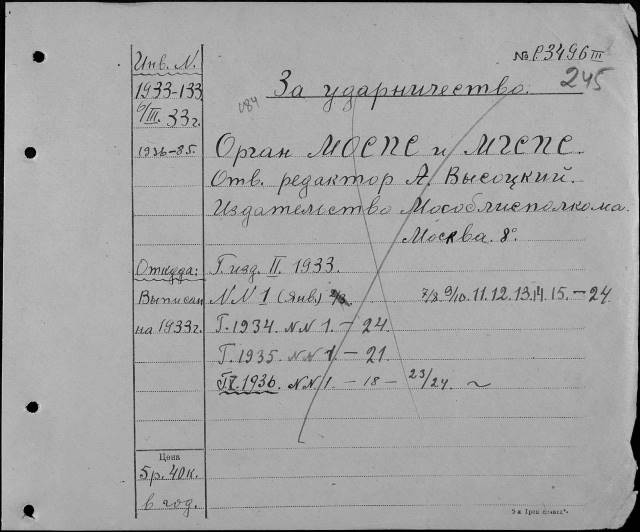 Инв. N.
1933-133
6/III. 33 г.
1936-85.
№ P3496 III
245
084
За ударничество.
Орган МОСПС и МГСПС.
Отв. редактор А. Высоцкий.
Издательство Мособлисполкома.
Москва. 8°.
Откуда:
Г. изд. II. 1933.
Выписан
NN 1 (янв.) 2/3. 7/8. 9/10. 11. 12. 13. 14. 15. — 24.
на 1933 г.
Г. 1934. NN 1. — 24.
Г. 1935. NN 1. — 21.
1936. NN 1. — 18 — 23/24.
Цена
5 р. 40 к.
в год.